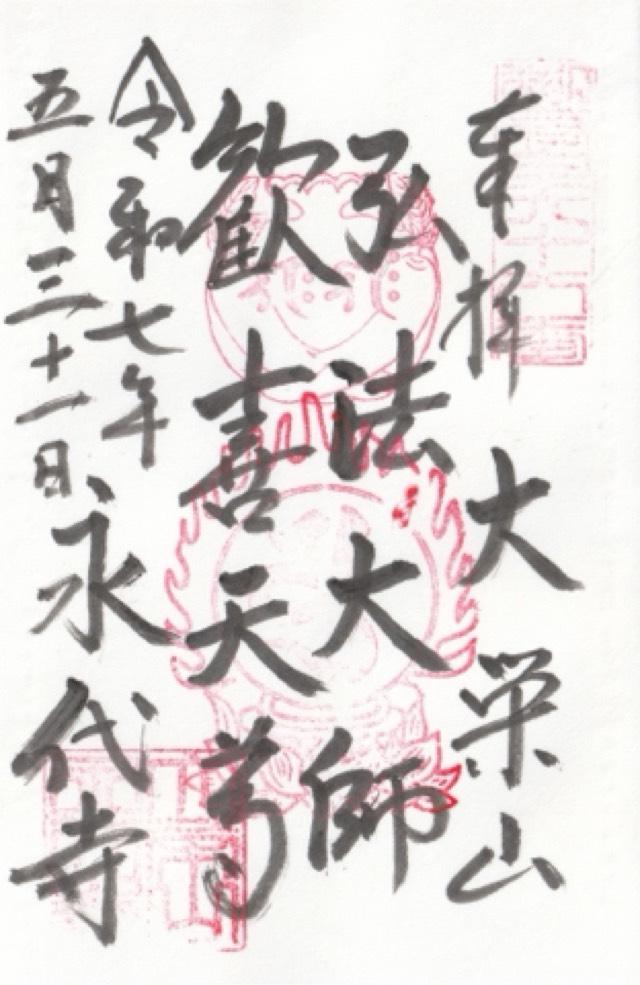 奉拝 大栄山
弘法大師
歓喜天尊
令和七年
五月三十一日
永代寺